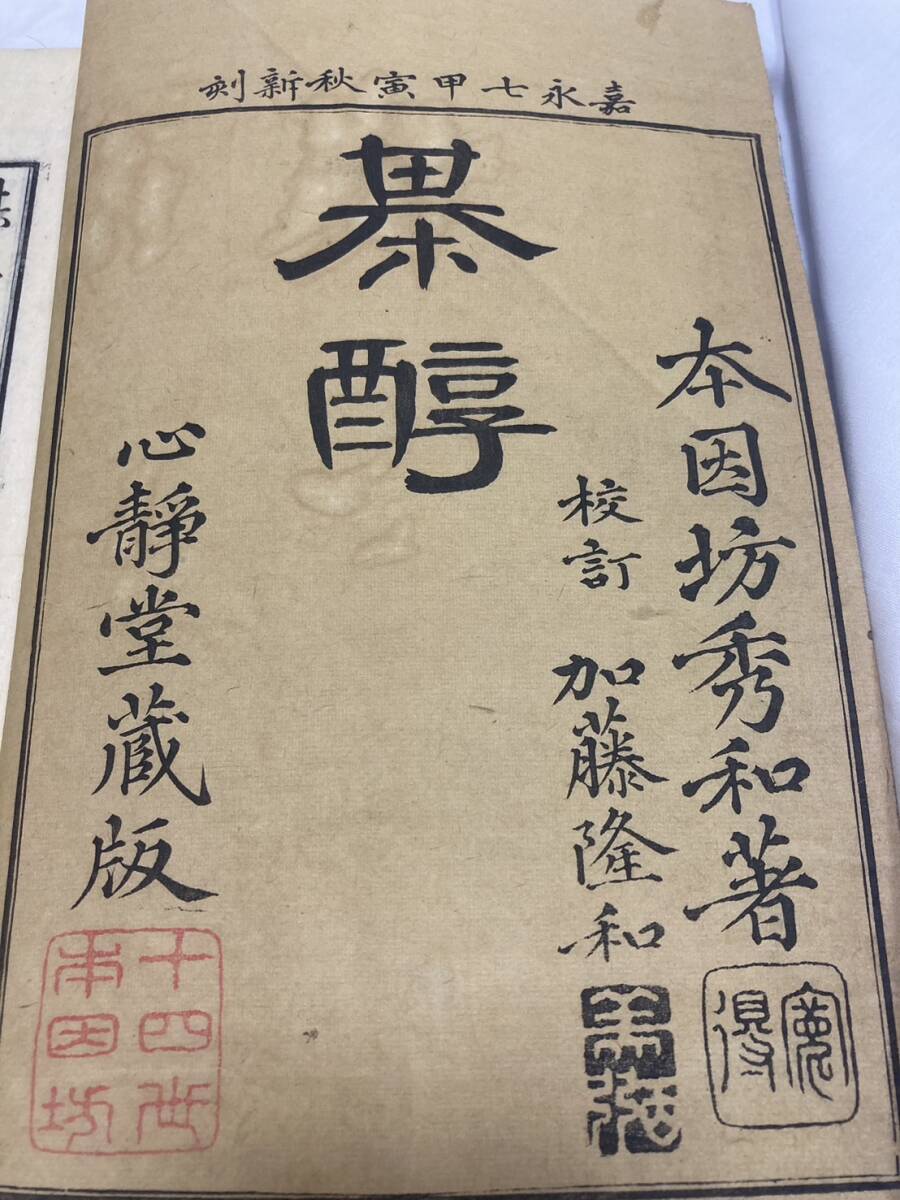 嘉永七甲寅秋新刻
本因坊秀和著
校訂 加藤隆和
棊醇
心靜堂蔵版
十四世
本因坊